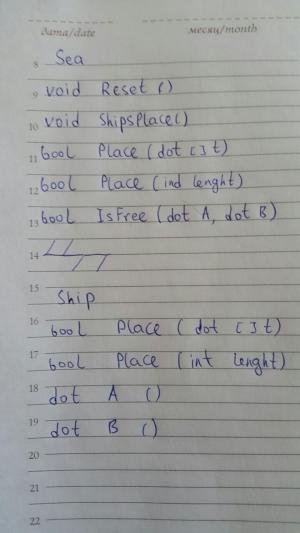 дата/date месяц/month
8 Sea
9 void Reset ()
10 void ShipsPlace()
11 bool Place (dot [] t)
12 bool Place (ind lenght)
13 bool IsFree (dot A, dot B)
14
15
Ship
16 bool Place ( dot [] t)
17 bool Place (int lenght)
18 dot A ()
19 dot B ()
20
21
22